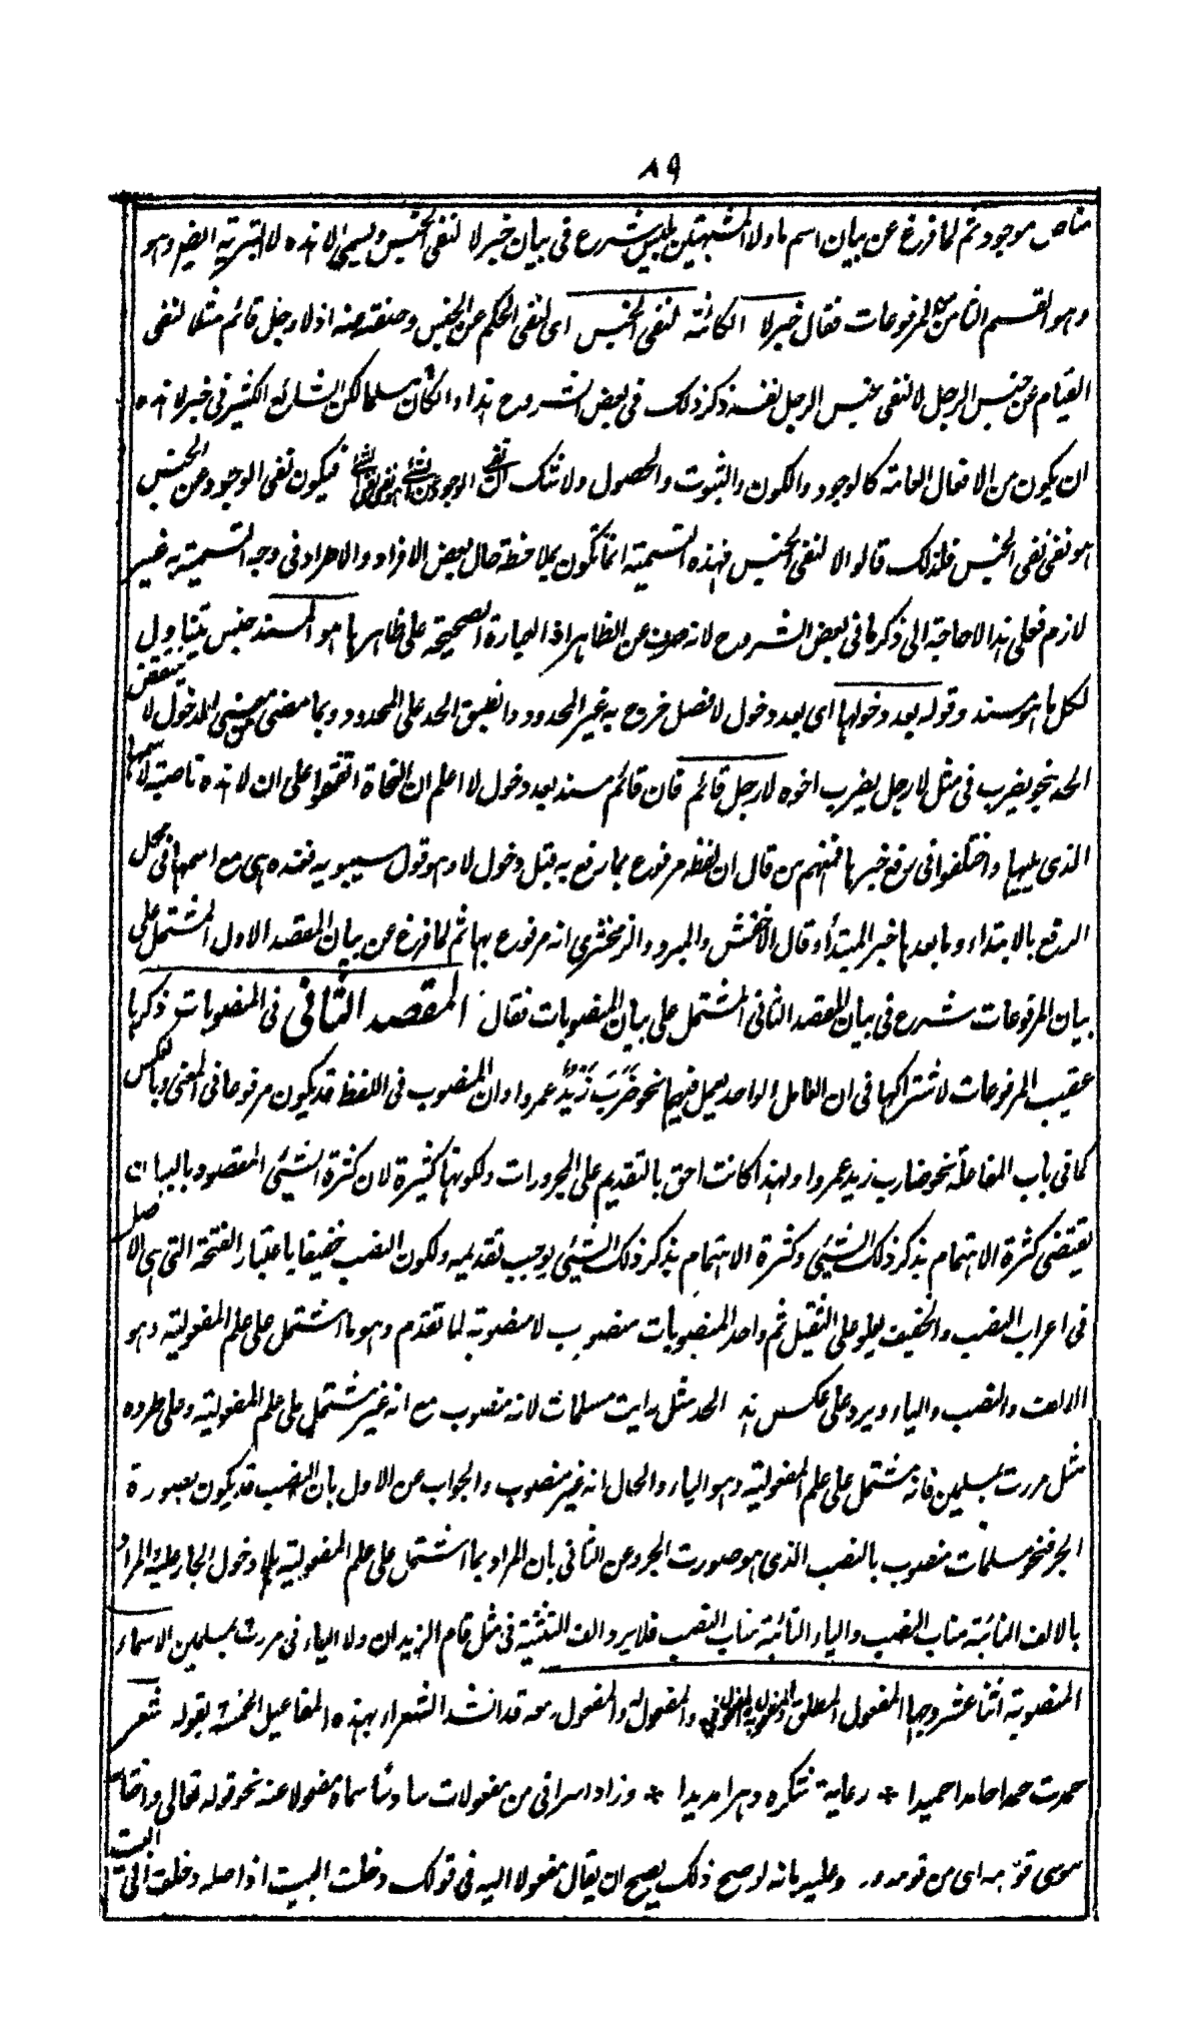 ٨٩
مناص موجود ثم لما فرغ عن بيان اسم ما ولا المشبهتين بليس شرع في بيان خبر لا لنفى الجنس ويسمى لا هذه لا التبرية ايضو وهو
وهو القسم الثامن من المرفوعات فقال خبر لا الكائنة لنفى الجنس اى لنفى الحكم عن الجنس وصفته عنه اذ لا رجل قائم مثلا لنفى
القيام عن جنس الرجل لا لنفى جنس الرجل نفسه ذكر ذلك فى بعض الشروح هذا وان كان مسلما لكن الشائع الكثير فى خبر لا هذه
ان يكون من الافعال العامة كالوجود والكون والثبوت والحصول ولا شك ان نفى الوجود عن الشئ هو نفى الشئ فيكون نفى الوجود عن الجنس
هو نفى الجنس فلذلك قالوا لا لنفى الجنس فهذه التسمية انما تكون بملاحظة حال بعض الافراد والاطراد فى وجه التسمية به غير
لازم فعلى هذا لا حاجة الى ذكر ما فى بعض الشروح لانه صرف عن الظاهر اذ العبارة الصحيحة على ظاهرها هو المسند جنس يتناول
لكل ما هو مسند وقوله بعد دخولها اى بعد دخول لا فصل خرج به غير المحدود وانطبق الحد على المحدود وبما مضى من معنى الدخول لا ينتقض
الحد بنحو يضرب فى مثل لا رجل يضرب اخوه لا رجل قائم فان قائم مسند بعد دخول لا اعلم ان النحاة اتفقوا على ان لا هذه ناصبة لاسمها
الذى يليها واختلفوا فى رفع خبرها فمنهم من قال ان لفظه مرفوع بما رفع به قبل دخول لا وهو قول سيبويه فعنده هى مع اسمها فى محل
الرفع بالابتداء وما بعدها خبر المبتدأ وقال الاخفش والمبرد والزمخشرى انه مرفوع بها ثم لما فرغ عن بيان المقصد الاول المشتمل على
بيان المرفوعات شرع فى بيان المقصد الثانى المشتمل على بيان المنصوبات فقال المقصد الثانى فى المنصوبات ذكرها
عقيب المرفوعات لاشتراكها فى ان العامل الواحد يعمل فيهما نحو ضَرَبَ زَيْدٌ عمروا وان المنصوب فى اللفظ قد يكون مرفوعا فى المعنى وبالعكس
كما فى باب المفاعلة نحو ضارب زيد عمروا ولهذا كانت احق بالتقديم على المجرورات ولكونها كثيرة لان كثرة الشئ المقصود بالبيان
يقتضى كثرة الاهتمام بذكر ذلك الشئ وكثرة الاهتمام بذكر ذلك الشئ يوجب تقديمه ولكون النصب خفيفا باعتبار الفتحة التى هى الاصل
فى اعراب النصب والخفيف يعلو على الثقيل ثم واحد المنصوبات منصوب لا منصوبة لما تقدم وهو ما اشتمل على علم المفعولية وهو
الالف والنصب والياء ويرد على عكس هذا الحد مثل رايت مسلمات لانه منصوب مع انه غير مشتمل على علم المفعولية وعلى طرده
مثل مررت بمسلمين فانه مشتمل على علم المفعولية وهو الياء والحال انه غير منصوب والجواب عن الاول بان النصب قد يكون بصورة
الجر فنحو مسلمات منصوب بالنصب الذى هو صورت الجر وعن الثانى بان المراد بما اشتمل على علم المفعولية بلا دخول الجار عليه والمراد
بالالف النائبة مناب النصب والياء النائبة مناب النصب فلا يرد الف التثنية فى مثل قام الزيدان ولا الياء فى مررت بمسلمين الاسماء
المنصوبة اثنا عشر وجها المفعول المطلق والمفعول به والمفعول فيه والمفعول له والمفعول معه قد انشد الشعراء بهذه المفاعيل الخمسة بقوله شعر
حمدت حمدا حامدا حميدا * رعاية شكره دهرا مديدا * وزاد السيرافى من مفعولات سادسا سماه مفعولا عنه نحو قوله تعالى واختار
موسى قومه اى من قومه ورد عليه بانه لو صح ذلك يصح ان يقال مفعولا اليه فى قولك دخلت البيت اذ اصله دخلت الى البيت